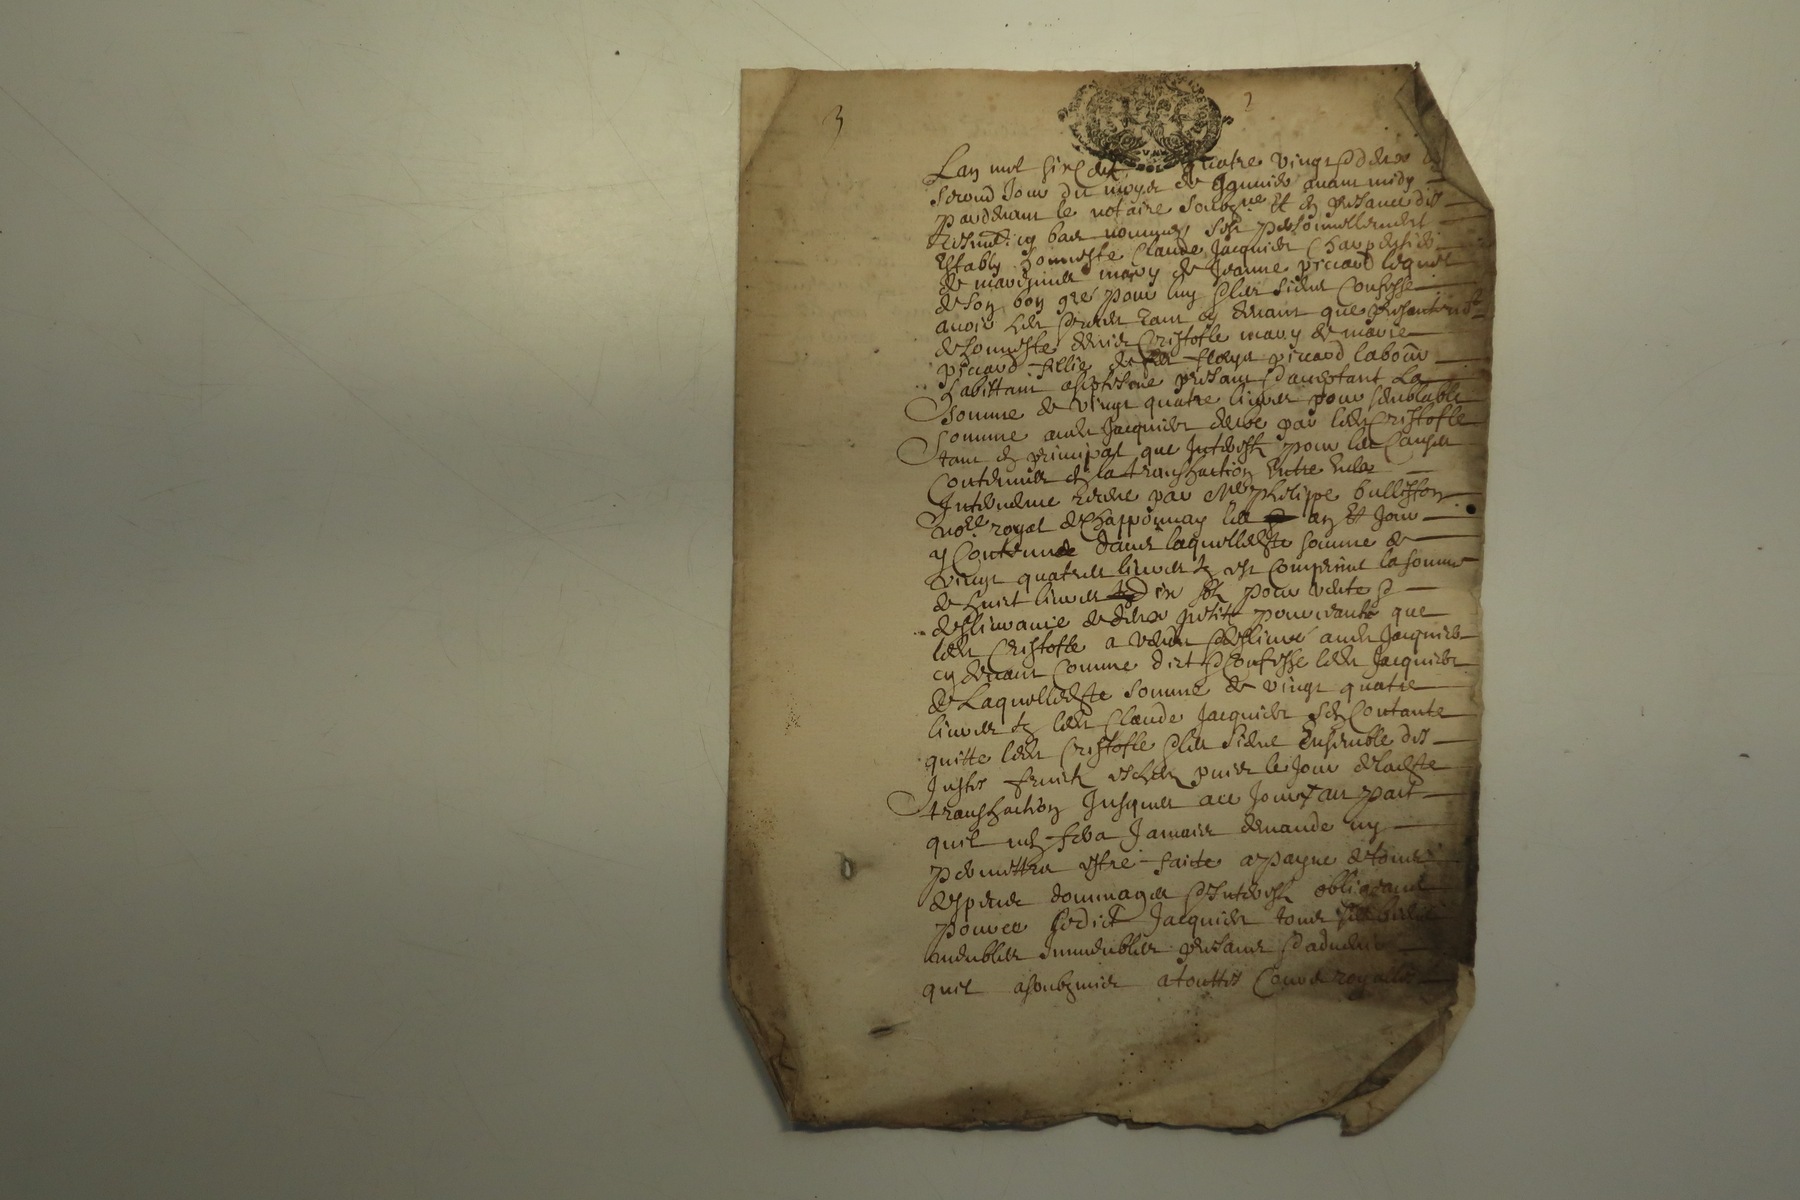 3
2
Lan mil six cent quatre vingt & deux le
second Jour du moys de Januier auant midy
pardeuant le notaire soubzne et en presance des
tesmoingz cy bas nommes sest personnellement
estably honneste Claude Jacquier Charpentier
de mary de Jeanne piccard lequel
de son bon gré pour luy & les siens Confesse
auoir heu & receu tant cy deuant que presentemt
de honneste Cristofle mary de marie
piccard fillie de piccard laboúr
habittant present & acceptant La
somme de vingt quatre liures pour semblable
somme audt Jacquier deube par ledt Cristofle
tant en principal que Interestz pour les Causes
Contenues en la transaction entre eulx
Interuenue receue par Me philippe
nore royal de Chapponnay les an et Jour
y Contenus dans laquelle somme de
vingt quatre liures tz est Comprinse la somme
de huict liures dix solz pour vente &
desliurance de deux petits que
ledt Cristofle a vendu & desliuré audt Jacquier
cy deuant Comme dict & Confesse ledt Jacquier
de Laquelle somme de vingt quatre
liures tz ledt Claude Jacquier sen Contante
quitte ledt Cristofle & les siens Ensemble des
Justes fruictz puis le Jour de ladte
transaction Jusques a ce Jour au pact
quil nen fera Jamais demande ny
permettra estre faicte a payne de tous
despens dommages & Interestz obligeant
pour ce ledict Jacquier tous ses biens
meubles Immeubles presans & aduenir
quil a soubzmis a touttes Cours royalles